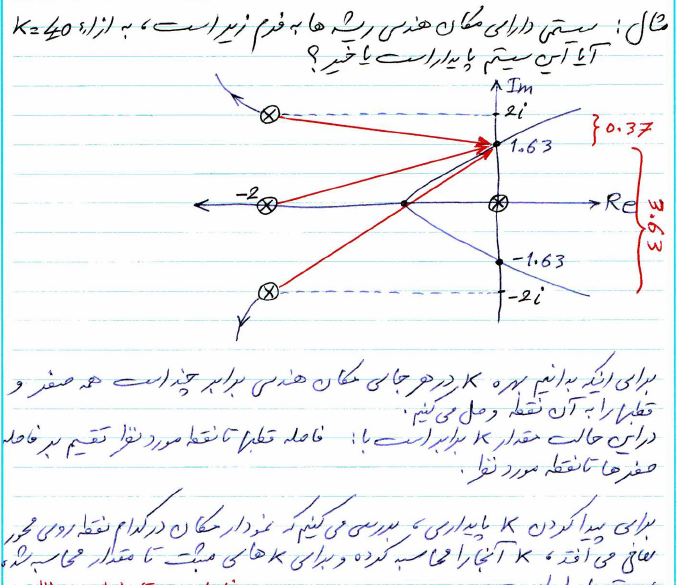 مثال : سیستمی دارای مکان هندسی ریشه ها به فرم زیر است ، به ازاء K=40
آیا این سیستم پایدار است یا خیر ؟
Im
2i
0.37
1.63
-2
Re
3.63
-1.63
-2i
برای اینکه بدانیم بهره K در هر جای مکان هندسی برابر چند است همه صفر و
قطبها را به آن نقطه وصل می کنیم .
در این حالت مقدار K برابر است با : فاصله قطبها تا نقطه مورد نظر تقسیم بر فاصله
صفرها تا نقطه مورد نظر .
برای پیدا کردن K پایداری ، بررسی می کنیم که نمودار مکان در کدام نقطه روی محور
می افتد ، K آنجا را محاسبه کرده و برای K های مثبت تا مقدار محاسبه شده